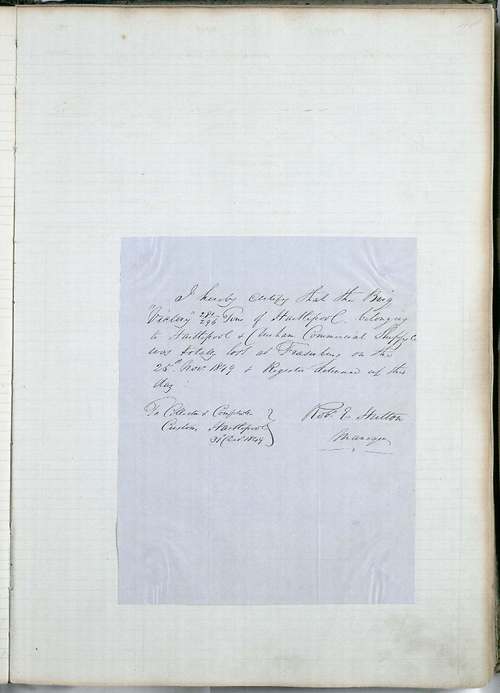 I hereby certify that the Brig
" 281/296 Tons of Hartlepool belonging
to Hartlepool & Durham Commercial
was totally lost at on the
25th Novr 1849 & Register delivered up this
day
To Collector & Comptroller
Customs Hartlepool
31 Decr 1849
Robt E Hutton
Manager